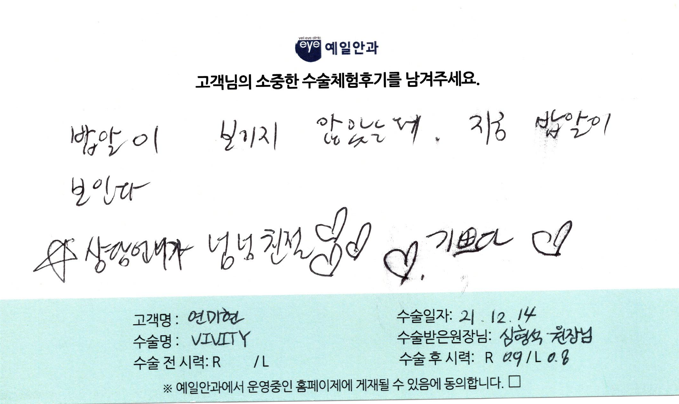 eye 예일안과
고객님의 소중한 수술체험후기를 남겨주세요.
밥알이 보이지 않았는데. 지금 밥알이
보인다
☆ 상담언니가 넘넘 친절 ♡♡♡ ♡. 기쁘다 ♡
고객명 : 연미현 수술일자: 21. 12. 14
수술명 : VIVITY 수술받은원장님: 심형석 원장님
수술 전 시력: R /L 수술 후 시력: R 0.9 / L 0.8
※ 예일안과에서 운영중인 홈페이제에 게재될 수 있음에 동의합니다. □